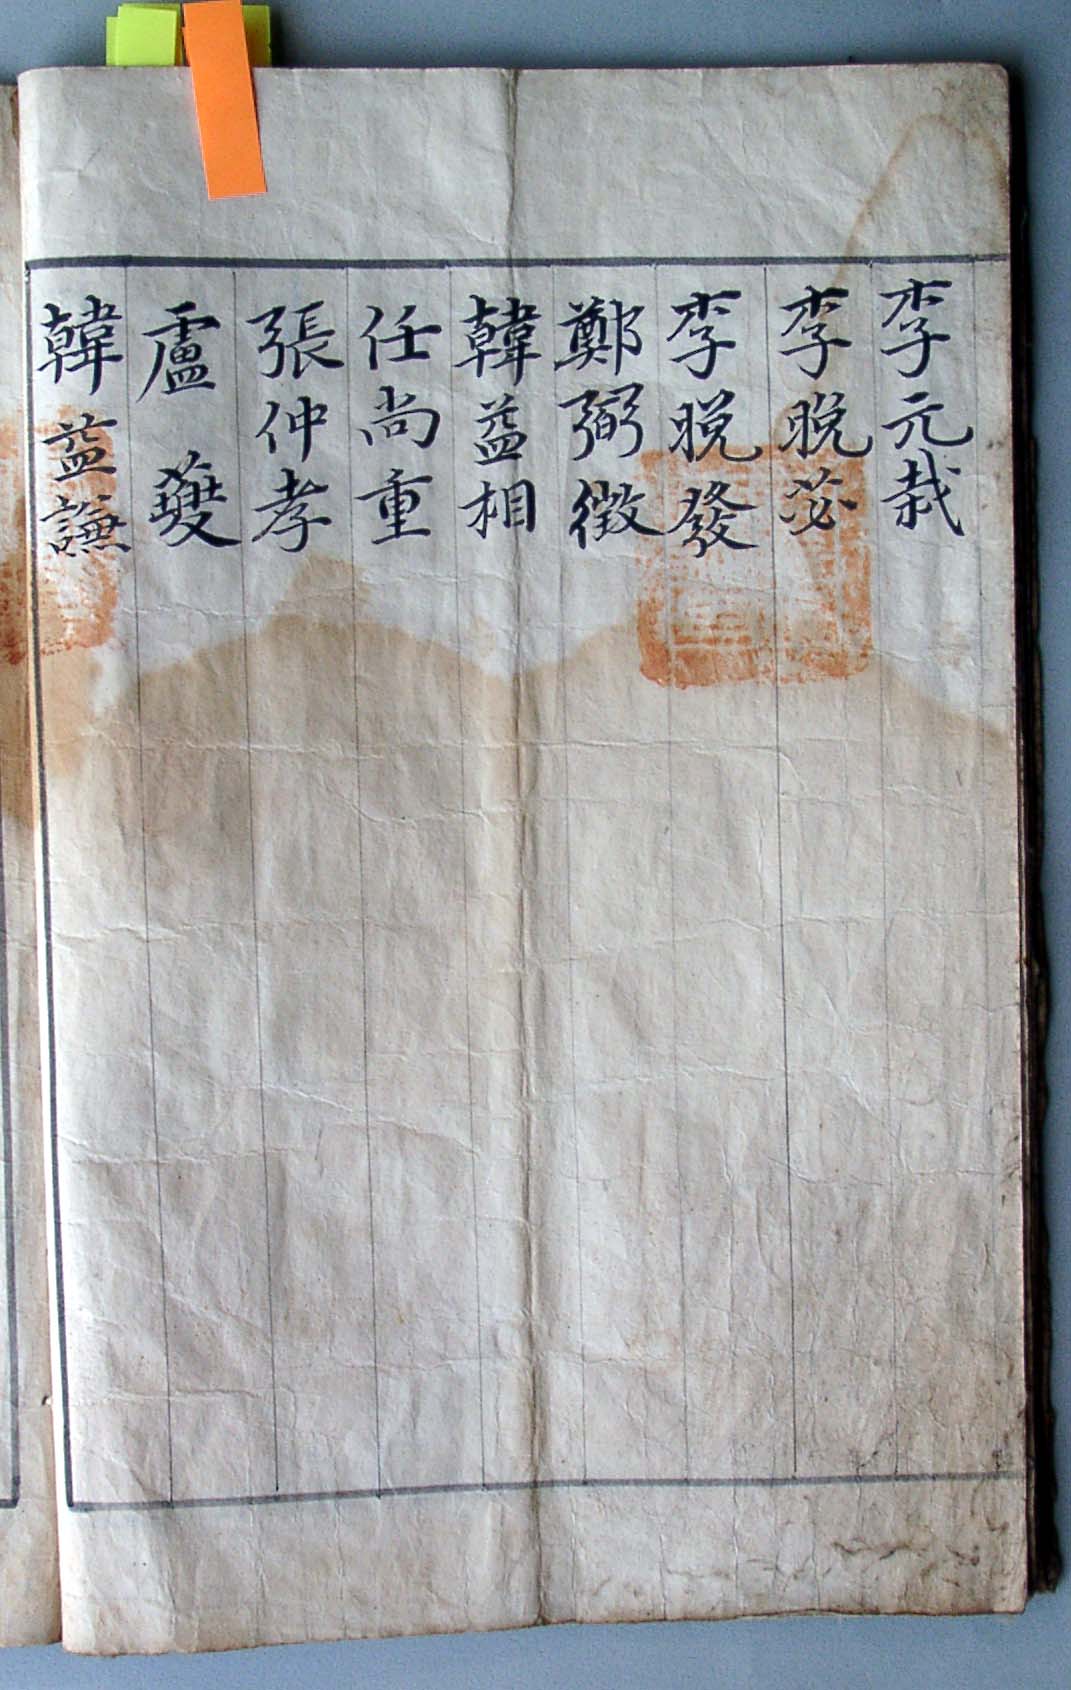 李元栽
李晩苾
李晩發
鄭弼徵
韓益相
任尚重
張仲孝
盧
韓益謙